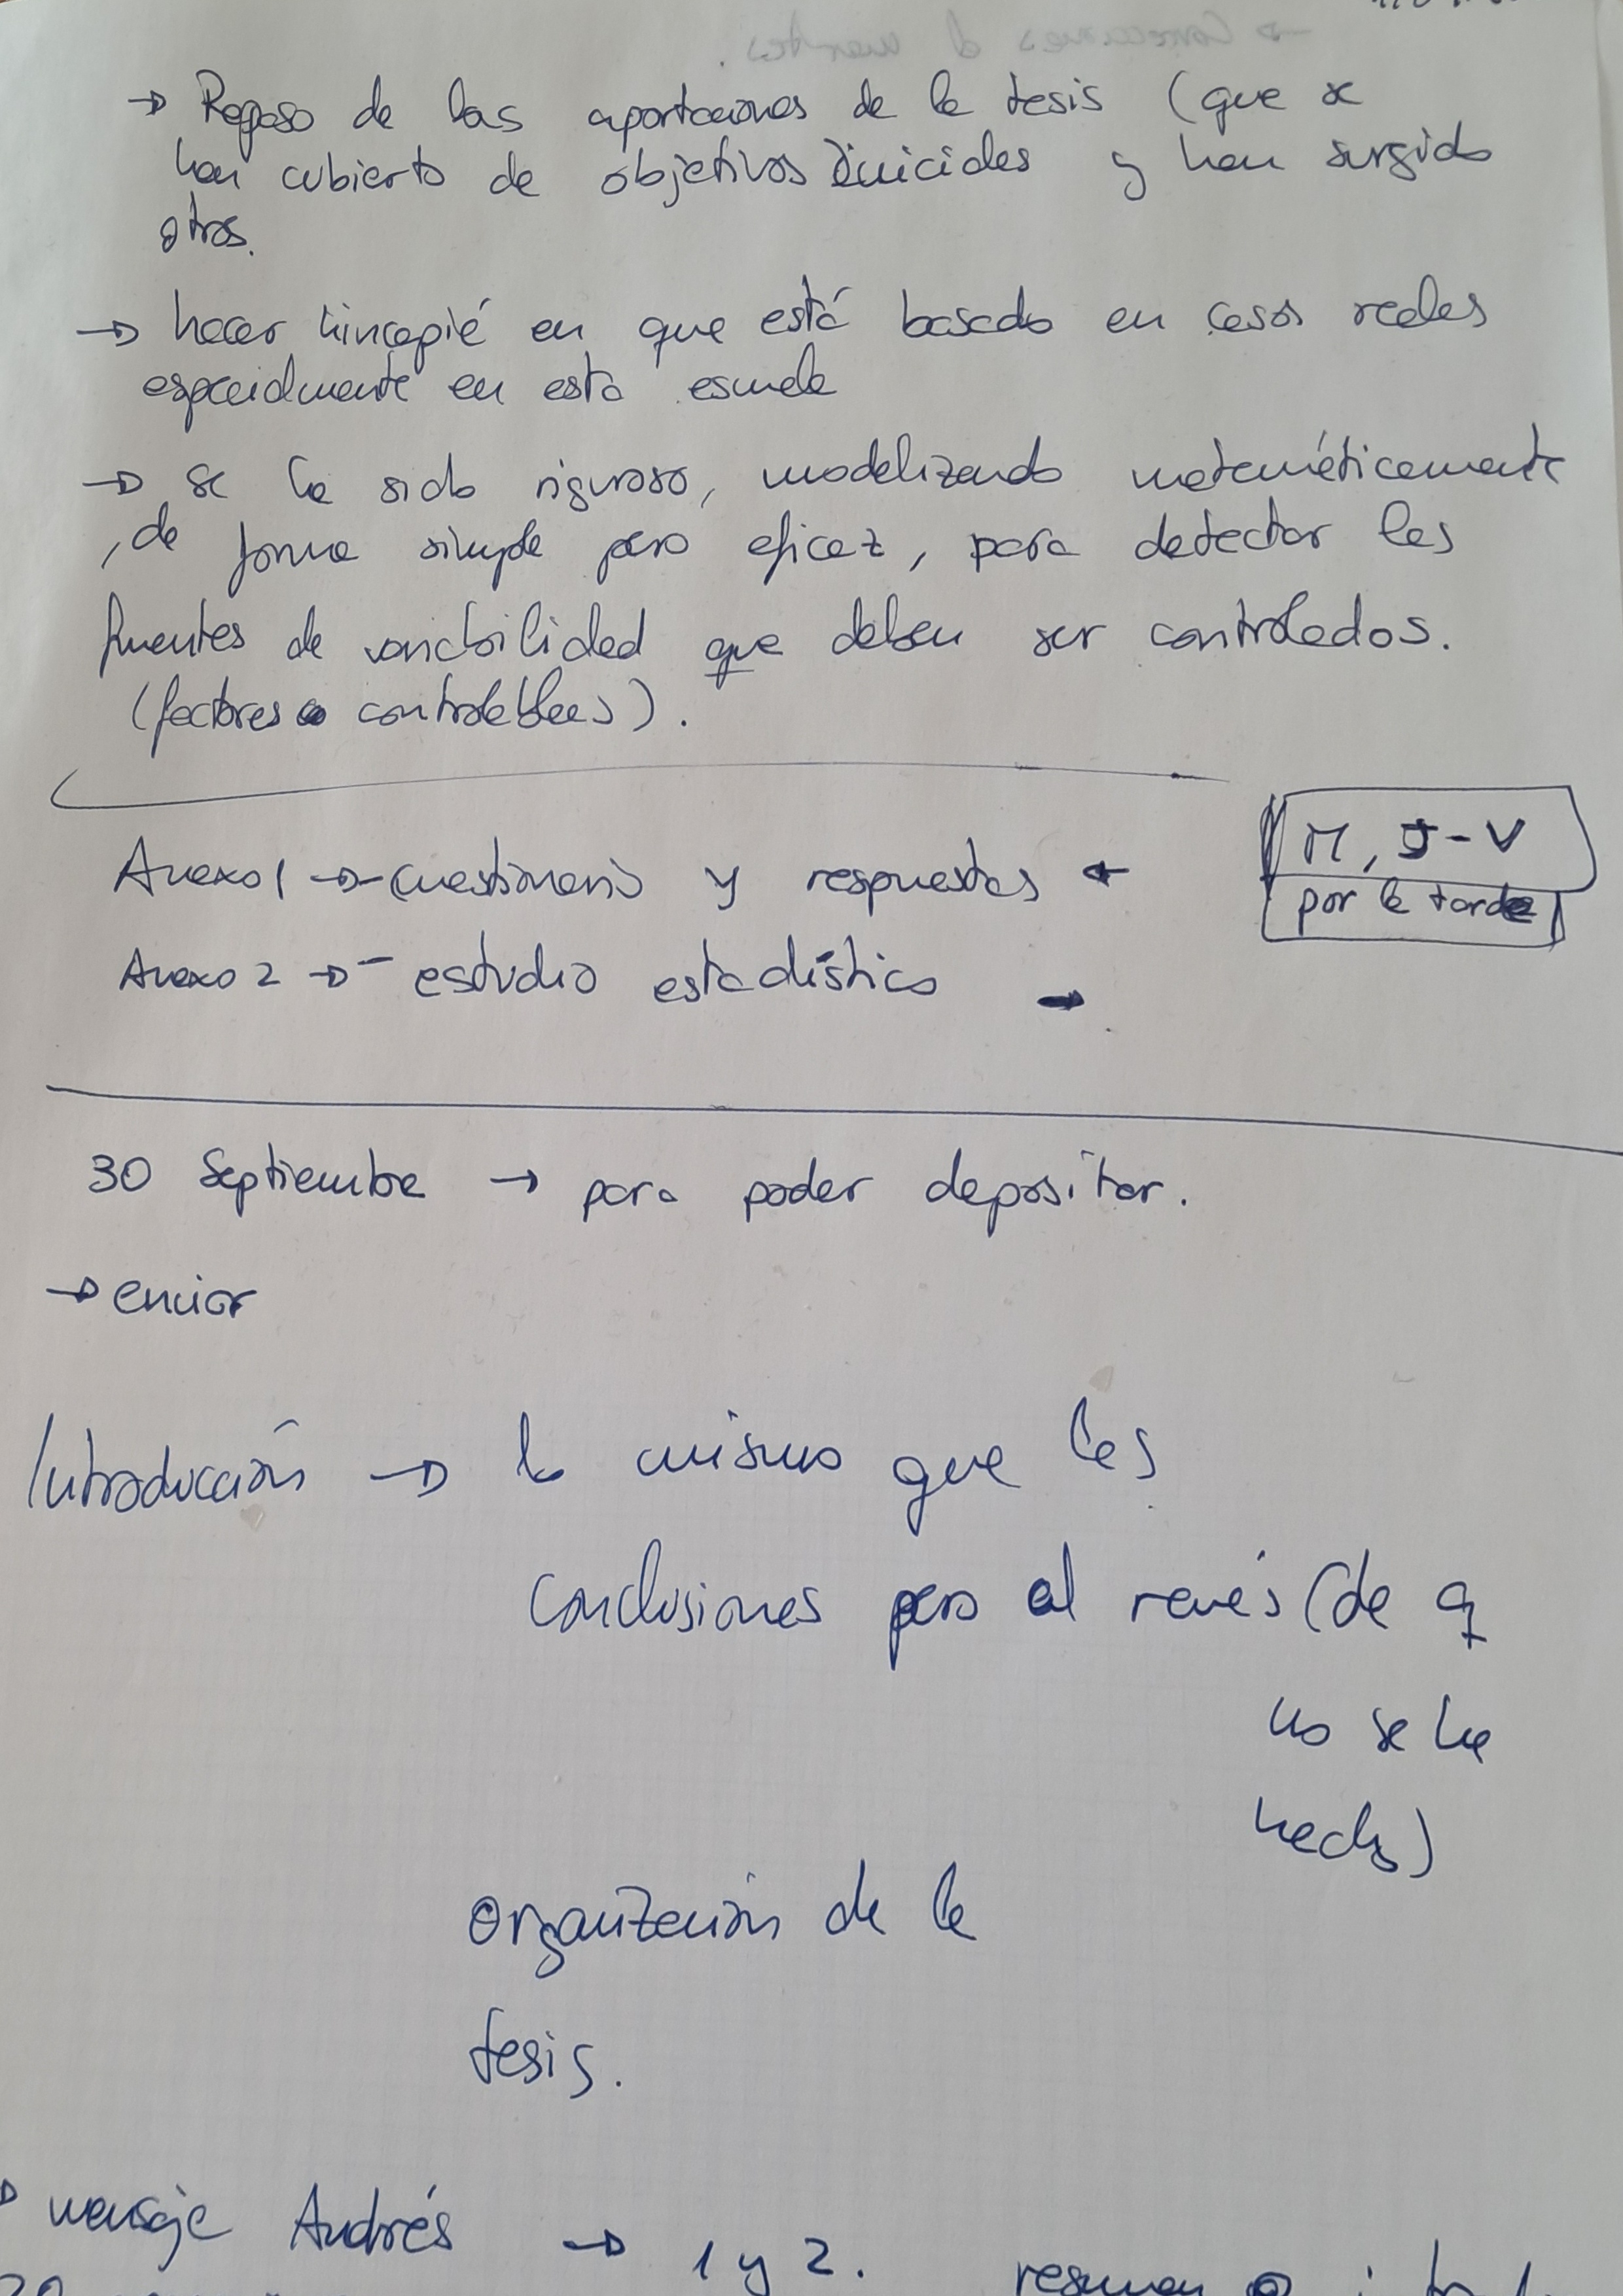 → Repaso de las aportaciones de la tesis (que se
han cubierto de objetivos iniciales y han surgido
otros.
→ hacer hincapié en que está basado en casos reales
especialmente en esta escuela
→ se ha sido riguroso, modelizando matemáticamente
, de forma simple pero eficaz, para detectar las
fuentes de variabilidad que deben ser controlados.
(factores controlables).
Anexo 1 → - cuestionario y respuestas ←
M, J - V
por la tarde
Anexo 2 → - estudio estadístico →
30 Septiembre → para poder depositar.
→ enviar
Introducción → lo mismo que las
conclusiones pero al revés (de q
no se ha
hecho)
organización de la
tesis.
→ mensaje Andrés → 1 y 2.
resumen